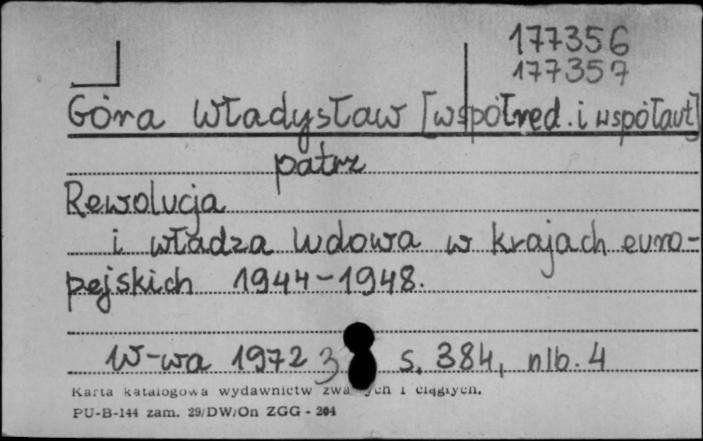 177356
177357
Góra Władysław [współred. i współaut]
patrz
Rewolucja
i władza ludowa w krajach euro-
pejskich 1944-1948.
W-wa 1972 s. 384, nlb. 4
Karta katalogowa wydawnictw i ciągłych.
PU-B-144 zam. 29/DW/On ZGG - 204